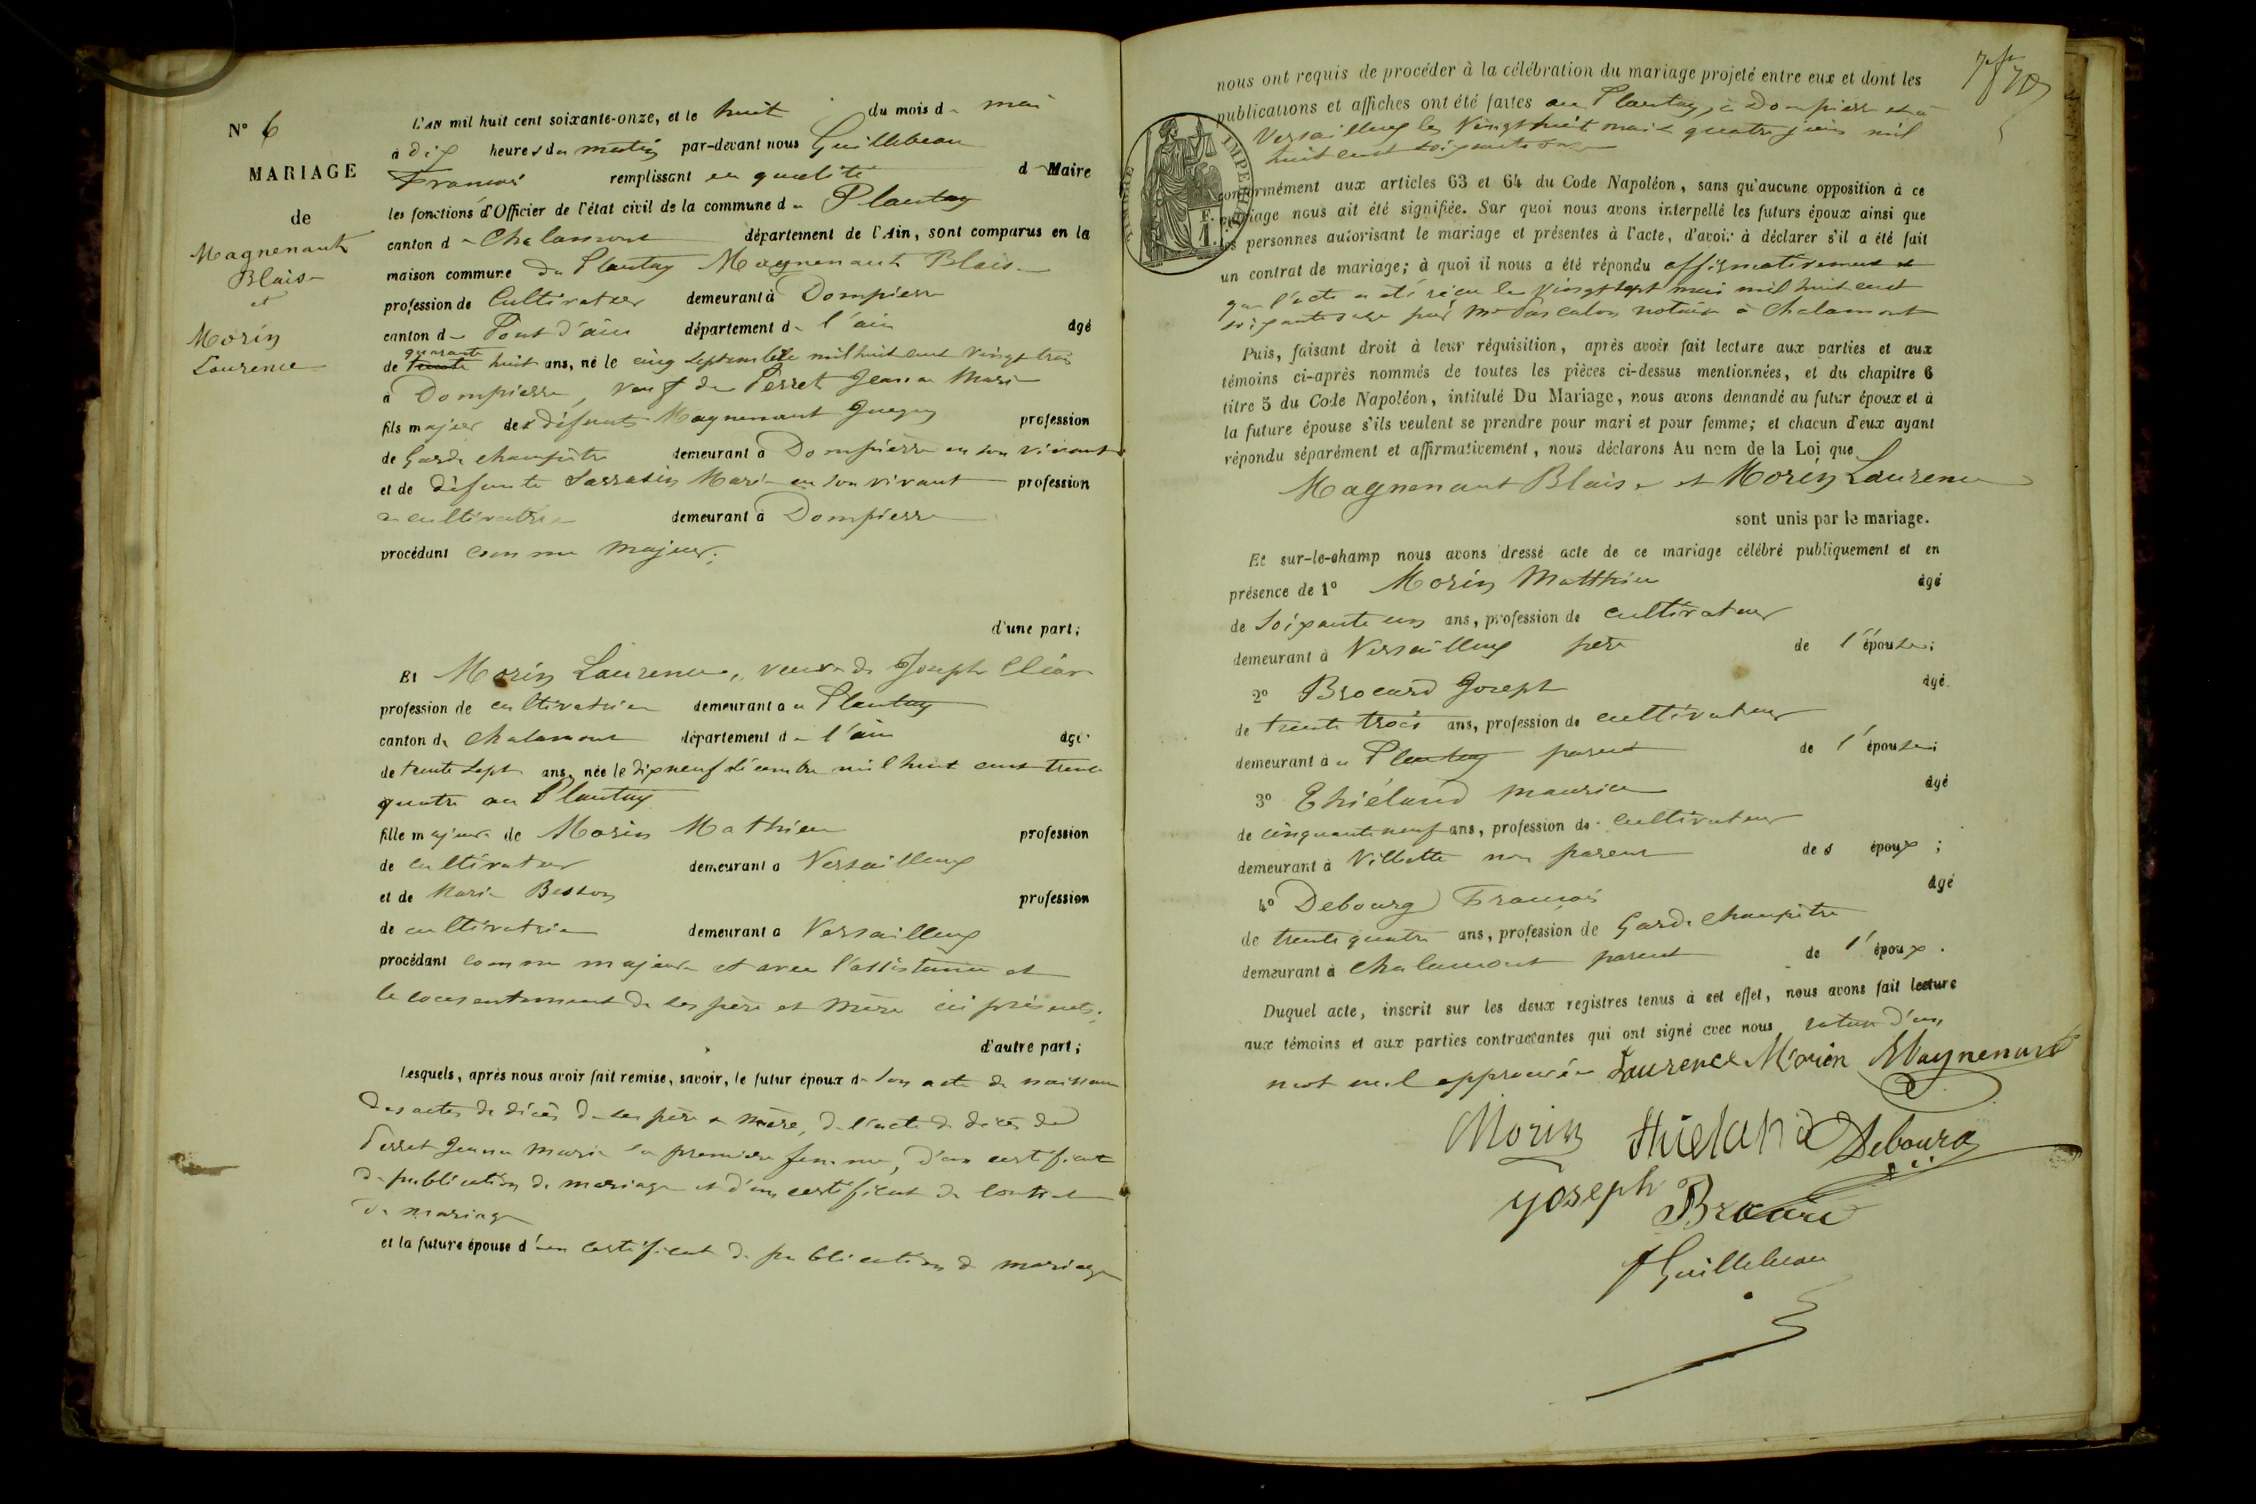 N° 6
MARIAGE
de
Magnenant
Blaise
et
Morin
Laurence
L'AN mil huit cent soixante-onze, et le huit du mois de mai
à dix heures du matin par-devant nous Guillebeau
Francois remplissant en qualité de Maire
les fonctions d'Officier de l'état civil de la commune du Plantay
canton de Chalamont département de l'Ain, sont comparus en la
maison commune du Plantay Magnenant Blaise
profession de Cultivateur demeurant à Dompierre
canton de Pont d'ain département de l'ain âgé
quarante
de trente huit ans, né le cinq septembre mil huit cent vingt trois
à Dompierre, veuf de Perret Jeanne Marie
fils majeur des défunts Magnenant profession
de Garde champêtre demeurant à Dompierre en son vivant
et de défunte Sarrasin Marie en son vivant profession
de cultivatrice demeurant à Dompierre
procédant comme majeur.
d'une part;
Et Morin Laurence, veuve de Joseph
profession de cultivatrice demeurant à u Plantay
canton de Chalamont département de l'ain âgé
de trente sept ans, née le dix neuf décembre mil huit cent trente
quatre au Plantay
fille majeure de Morin Mathieu profession
de cultivateur demeurant à Versailleux
et de Marie Besson profession
de cultivatrice demeurant à Versailleux
procédant comme majeure et avec l'assistance et
le consentement de ses père et mère ici présents;
d'autre part;
Lesquels, après nous avoir fait remise, savoir, le futur époux de son acte de naissance
des actes de décès de ses père et mère, de l'acte de décès de
Perret Jeanne Marie sa première femme, d'un certificat
de publication de mariage et d'un certificat de contrat
de mariage
et la future épouse d'un certificat de publication de mariage
nous ont requis de procéder à la célébration du mariage projeté entre eux et dont les
publications et affiches ont été faites au Plantay, à Dompierre et à
Versailleux les vingt huit mai et quatre juin mil
huit cent soixante onze
TIMBRE IMPERIAL
1 F.
conformément aux articles 63 et 64 du Code Napoléon, sans qu'aucune opposition à ce
mariage nous ait été signifiée. Sur quoi nous avons interpellé les futurs époux ainsi que
les personnes autorisant le mariage et présentes à l'acte, d'avoir à déclarer s'il a été fait
un contrat de mariage; à quoi il nous a été répondu affirmativement et
que l'acte a été reçu le vingt sept mai mil huit cent
soixante onze par Me Pascalon notaire à Chalamont
Puis, faisant droit à leur réquisition, après avoir fait lecture aux parties et aux
témoins ci-après nommés de toutes les pièces ci-dessus mentionnées, et du chapitre 6
titre 5 du Code Napoléon, intitulé Du Mariage, nous avons demandé au futur époux et à
la future épouse s'ils veulent se prendre pour mari et pour femme; et chacun d'eux ayant
répondu séparément et affirmativement, nous déclarons Au nom de la Loi que
Magnenant Blaise et Morin Laurence
sont unis par le mariage.
Et sur-le-champ nous avons dressé acte de ce mariage célébré publiquement et en
présence de 1° Morin Matthieu âgé
de soixante un ans, profession de cultivateur
demeurant à Versailleux père de l'épouse;
2° Brocard Joseph âgé
de trente trois ans, profession de cultivateur
demeurant à u Plantay parent de l'épouse;
3° Thiéland maurice âgé
de cinquante neuf ans, profession de cultivateur
demeurant à Villette non parent des époux;
4° Debourg Francois âgé
de trente quatre ans, profession de Garde champêtre
demeurant à chalamont parent de l'époux.
Duquel acte, inscrit sur les deux registres tenus à cet effet, nous avons fait lecture
aux témoins et aux parties contractantes qui ont signé avec nous rature d'un
mot nul approuvée Laurence Morin Magnenant
Morin Thieland Debourg
yoseph Brocard
f Guillebeau